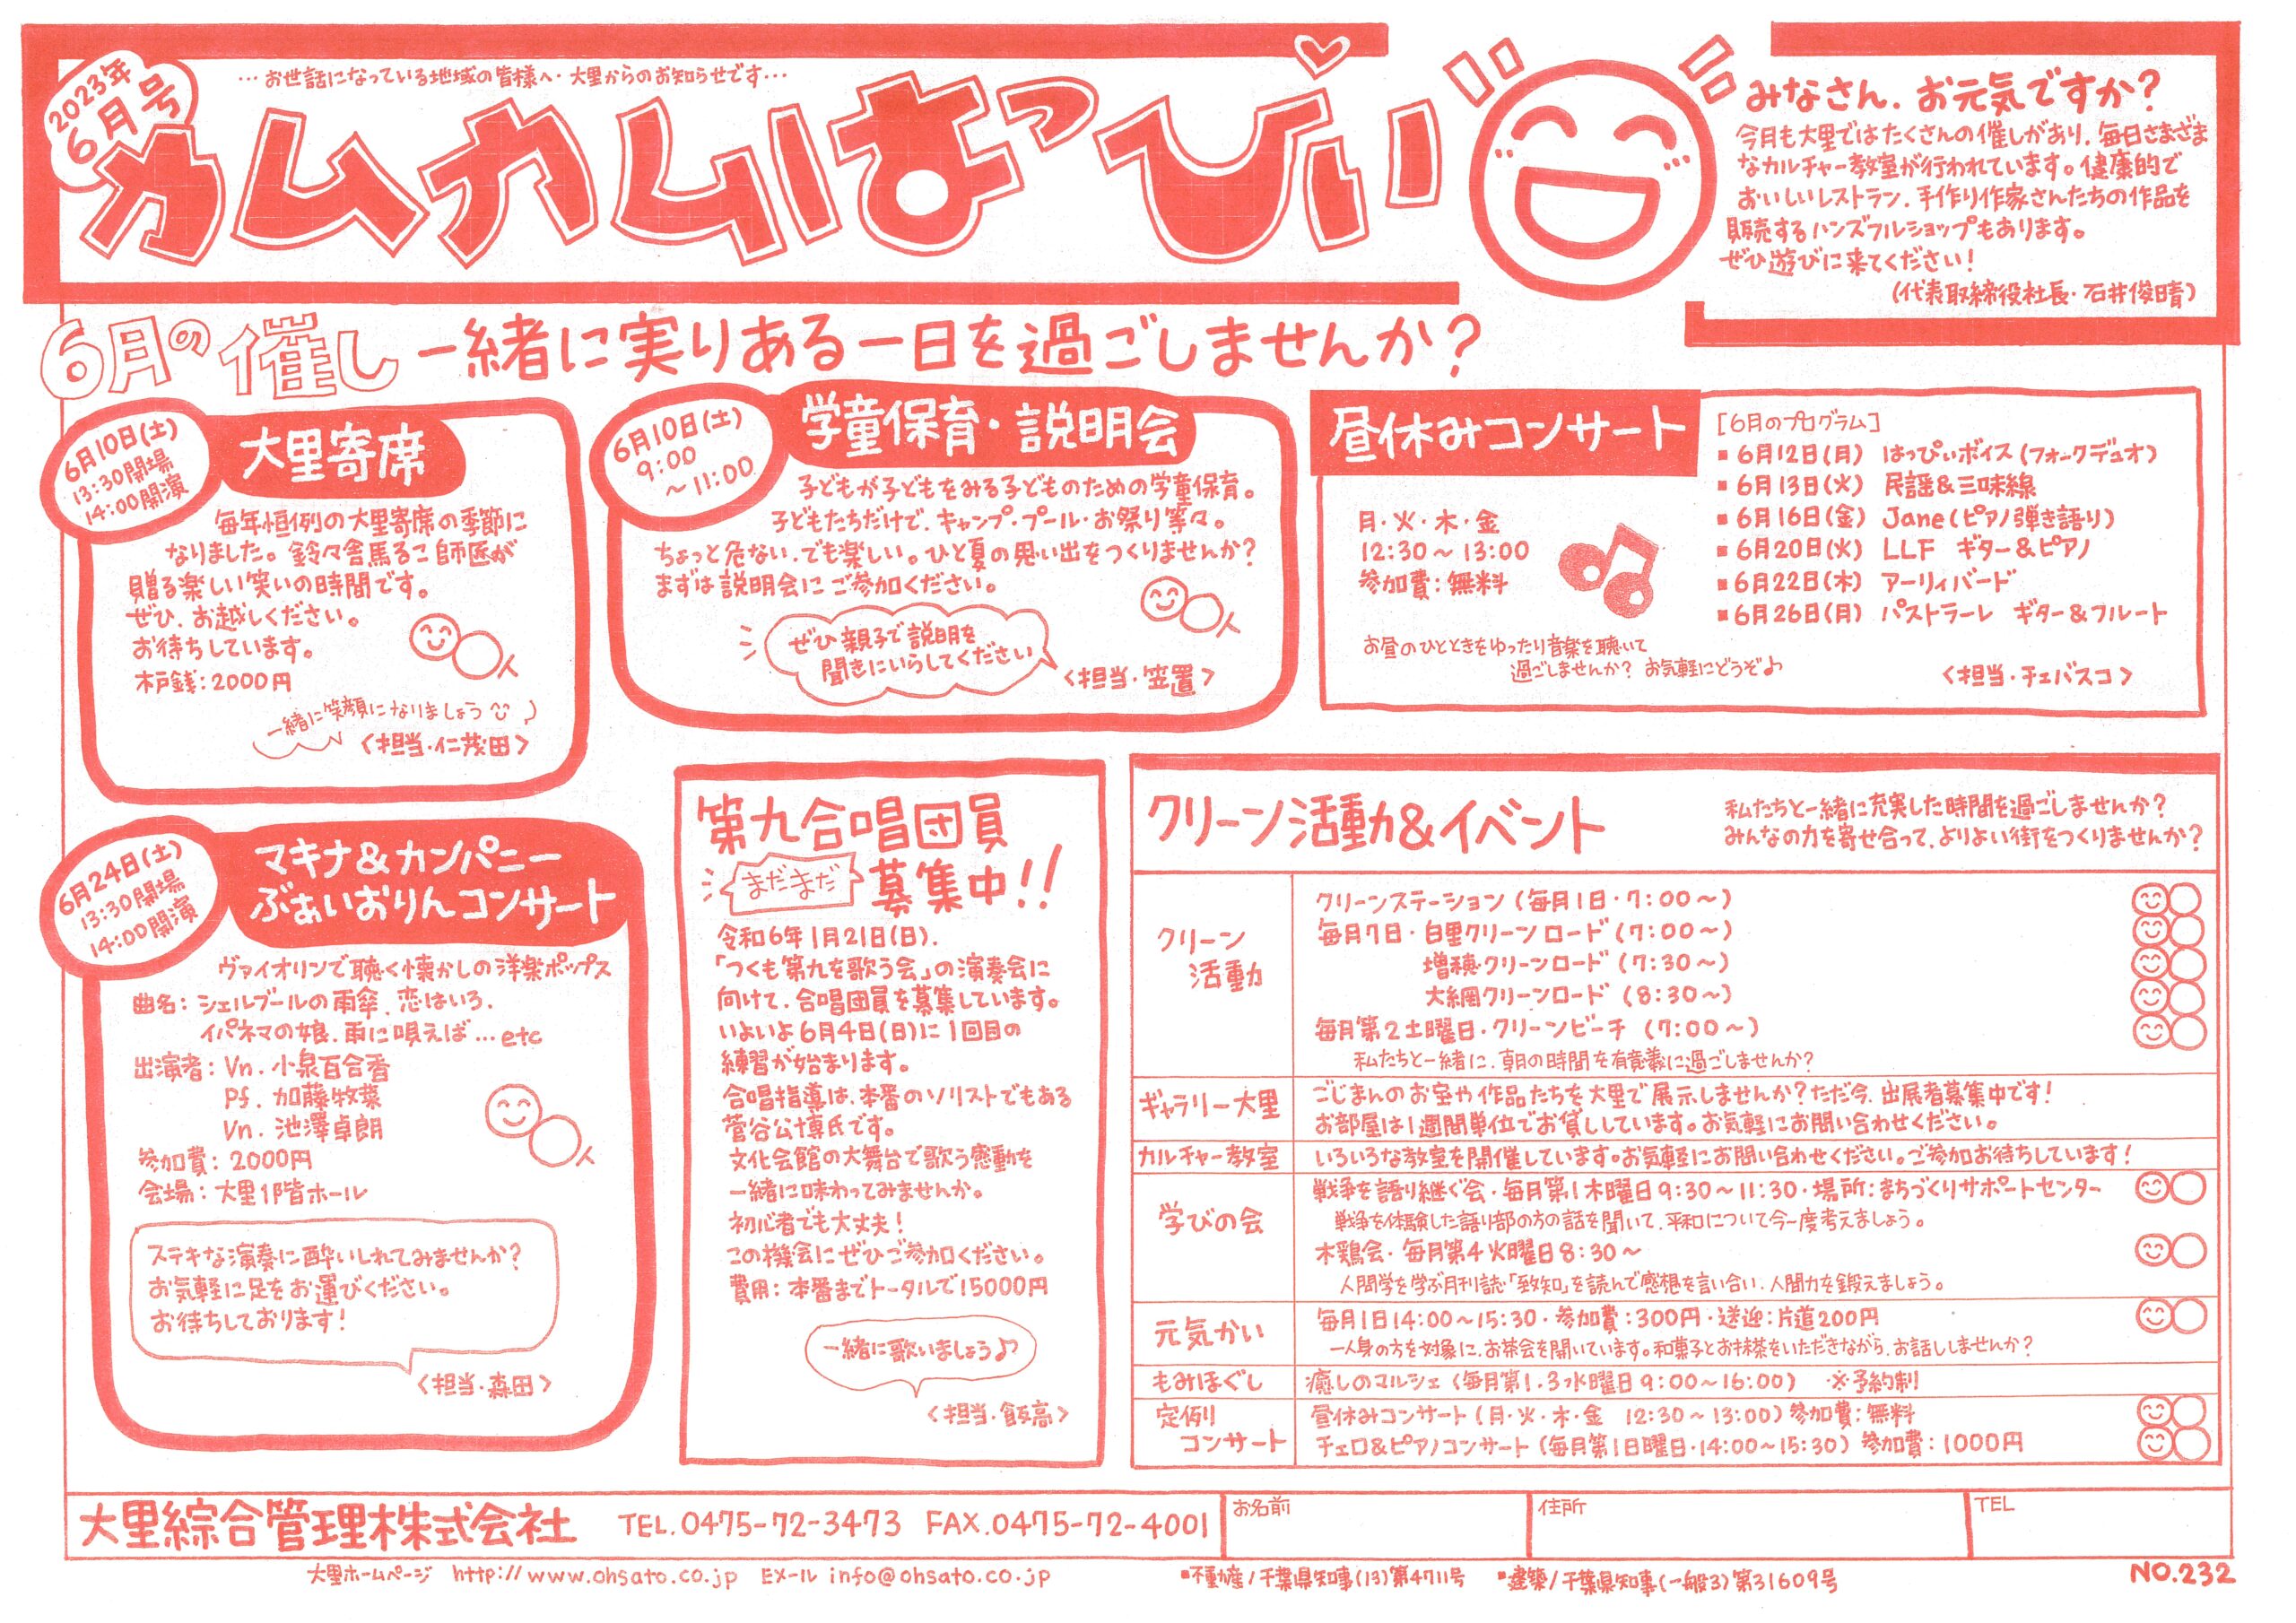 2023年
6月号
…お世話になっている地域の皆様へ・大里からのお知らせです…
カムカムはっぴぃ
みなさん、お元気ですか?
今月も大里ではたくさんの催しがあり、毎日さまざま
なカルチャー教室が行われています。健康的で
おいしいレストラン、手作り作家さんたちの作品を
販売するハンズフルショップもあります。
ぜひ遊びに来てください!
(代表取締役社長・石井俊晴)
6月の催し 一緒に実りある一日を過ごしませんか?
6月10日(土)
13:30開場
14:00開演
大里寄席
毎年恒例の大里寄席の季節に
なりました。鈴々舎馬るこ師匠が
贈る楽しい笑いの時間です。
ぜひ、お越しください。
お待ちしています。
木戸銭:2000円
一緒に笑顔になりましょう
<担当・仁茂田>
6月10日(土)
9:00
~11:00
学童保育・説明会
子どもが子どもをみる子どものための学童保育。
子どもたちだけで、キャンプ・プール・お祭り等々。
ちょっと危ない、でも楽しい。ひと夏の思い出をつくりませんか?
まずは説明会にご参加ください。
ぜひ親子で説明を
聞きにいらしてください
<担当・笠置>
昼休みコンサート
月・火・木・金
12:30~13:00
参加費:無料
お昼のひとときをゆったり音楽を聴いて
過ごしませんか? お気軽にどうぞ♪
[6月のプログラム]
▪6月12日(月) はっぴぃボイス(フォークデュオ)
▪6月13日(火) 民謡&三味線
▪6月16日(金) Jane(ピアノ弾き語り)
▪6月20日(火) LLF ギター&ピアノ
▪6月22日(木) アーリィバード
▪6月26日(月) パストラーレ ギター&フルート
<担当・チェバスコ>
6月24日(土)
13:30開場
14:00開演
マキナ&カンパニー
ぶぁいおりんコンサート
ヴァイオリンで聴く懐かしの洋楽ポップス
曲名:シェルブールの雨傘、恋はいろ、
イパネマの娘、雨に唄えば…etc
出演者:Vn. 小泉百合香
Pf. 加藤牧菜
Vn. 池澤卓朗
参加費:2000円
会場:大里1階ホール
ステキな演奏に酔いしれてみませんか?
お気軽に足をお運びください。
お待ちしております!
<担当・森田>
第九合唱団員
まだまだ 募集中!!
令和6年1月21日(日)、
「つくも第九を歌う会」の演奏会に
向けて、合唱団員を募集しています。
いよいよ6月4日(日)に1回目の
練習が始まります。
合唱指導は、本番のソリストでもある
菅谷公博氏です。
文化会館の大舞台で歌う感動を
一緒に味わってみませんか。
初心者でも大丈夫!
この機会にぜひご参加ください。
費用:本番までトータルで15000円
一緒に歌いましょう♪
<担当・飯高>
クリーン活動&イベント
私たちと一緒に充実した時間を過ごしませんか?
みんなの力を寄せ合って、よりよい街をつくりませんか?
クリーン
活動
クリーンステーション(毎月1日・7:00~)
毎月7日・白里クリーンロード(7:00~)
増穂クリーンロード(7:30~)
大網クリーンロード(8:30~)
毎月第2土曜日・クリーンビーチ(7:00~)
私たちと一緒に、朝の時間を有意義に過ごしませんか?
ギャラリー大里
ごじまんのお宝や作品たちを大里で展示しませんか?ただ今、出展者募集中です!
お部屋は1週間単位でお貸ししています。お気軽にお問い合わせください。
カルチャー教室
いろいろな教室を開催しています。お気軽にお問い合わせください。ご参加お待ちしています!
学びの会
戦争を語り継ぐ会・毎月第1木曜日9:30~11:30・場所:まちづくりサポートセンター
戦争を体験した語り部の方の話を聞いて、平和について今一度考えましょう。
木鶏会・毎月第4火曜日8:30~
人間学を学ぶ月刊誌・「致知」を読んで感想を言い合い、人間力を鍛えましょう。
元気かい
毎月1日14:00~15:30・参加費:300円・送迎:片道200円
一人身の方を対象に、お茶会を開いています。和菓子とお抹茶をいただきながら、お話ししませんか?
もみほぐし
癒しのマルシェ(毎月第1.3水曜日9:00~16:00) ※予約制
定例
コンサート
昼休みコンサート(月・火・木・金 12:30~13:00)参加費:無料
チェロ&ピアノコンサート(毎月第1日曜日・14:00~15:30)参加費:1000円
大里綜合管理株式会社 TEL.0475-72-3473 FAX.0475-72-4001
お名前
住所
TEL
大里ホームページ http://www.ohsato.co.jp Eメール info@ohsato.co.jp
▪不動産/千葉県知事(13)第4711号 ▪建築/千葉県知事(一般3)第31609号
NO.232